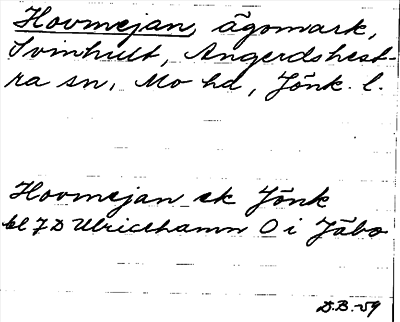 Hovmejan, ägomark,
Svinhult, Angerdshest-
ra sn, Mo hd, Jönk. l.
Hovmejan ek Jönk
bl 7D Ulricehamn O i Jäbo
D.B.-59